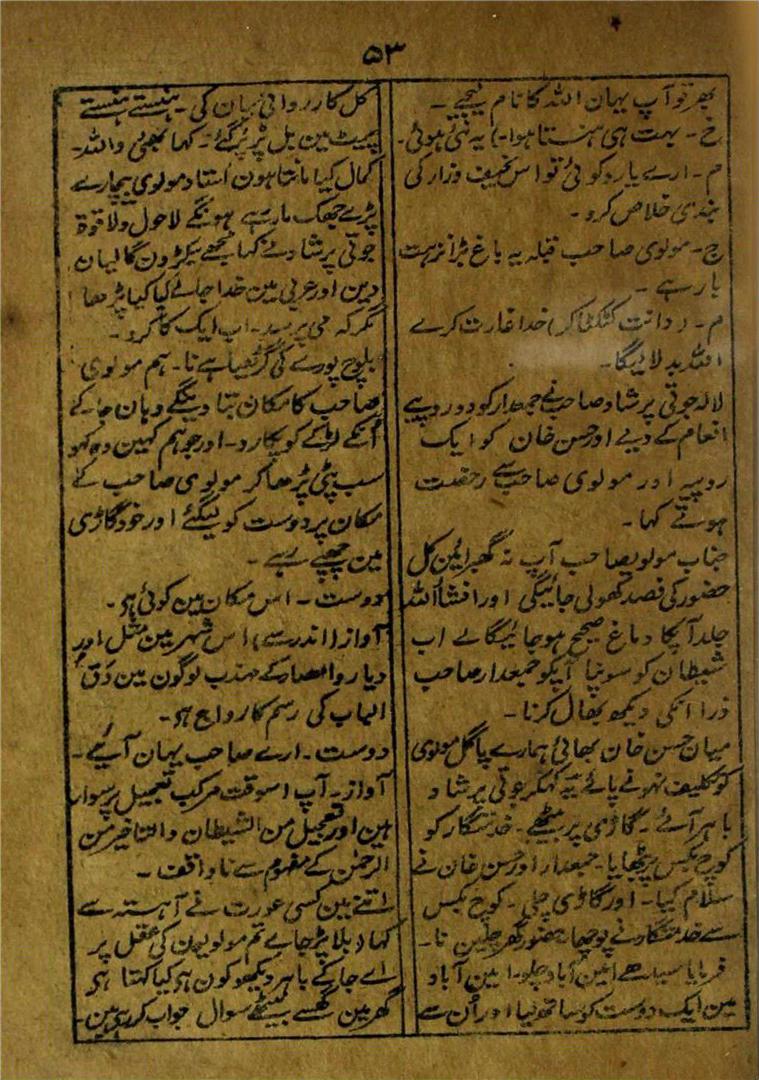 ۵۳
پھر تو آپ یہان اللہ کا نام لیجیے ۔
خ ۔ بہت ہی ہنستا ہوا ۔) یہ نئی ہوئی ۔
م ۔ ارے یارو کوئی تو اس نحیف وزار کی
بندی خلاص کرو ۔
ج ۔ مولوی صاحب قبلہ یہ باغ بڑا نزہت
بار ہے ۔
م ۔ (دانت کٹکٹا کر) خدا غارت کرے
اللہ بدلا لیگا ۔
لالہ جوتی پرشاد صاحب نے جمعدار کو دو روپیے
انعام کے دیے اور حسن خان کو ایک
روپیہ اور مولوی صاحب سے رخصت
ہوتے کہا ۔
جناب مولویصاحب آپ نہ گھبرائین کل
حضور کی فصد کھولی جائیگی اور انشأاللہ
جلد آپکا دماغ صحیح ہو جائیگا لے اب
شیطان کو سونپا آپکو جمعدار صاحب
ذرا انکی دیکھ بھال کرنا ۔
میان حسن خان بھائی ہمارے پاگل مولوی
کو تکلیف نہونے پائے یہ کہکر جوتی پرشاد
باہر آئے ۔ گاڑی پر بیٹھے ۔ خدمتگار کو
کوچ بکس پر بٹھایا ۔ جمعدار اور حسن خان نے
سلام کیا ۔ اور گاڑی چلی ۔ کوچ بکس
سے خدمتگار نے پوچھا حضور گھر چلین نا ۔
فرمایا سیدھے امین آباد چلو ۔ امین آباد
مین ایک دوست کو ساتھ لیا اور اُن سے
کل کارروائی بیان کی ۔ ہنستے ہنستے
پیٹ مین بل پڑ پڑ گئے ۔ کہا بھئی واللہ ۔
کمال کیا مانتا ہون اُستاد مولوی بیچارے
پڑے جھک مار رہے ہونگے لاحول ولا قوۃ
جوتی پرشاد نے کہا مجھے سیکڑون گالیان
دین اور عربی مین خدا جانے کیا کیا پڑھا
مگر کہ می پرسد ۔ اب ایک کام کرو ۔
بلوچ پورے کی گڑھیا ہے نا ۔ ہم مولوی
صاحب کا مکان بتا دینگے وہان جا کے
اُنکے لڑکے کو پکارو ۔ اور جو ہم کہین وہ کہو
سب پٹی پڑھا کر مولوی صاحب کے
مکان پر دوست کو لیگئے اور خود گاڑی
مین چھپے رہے ۔
دوست ۔ اس مکان مین کوئی ہو ۔
آواز (اندر سے) اس شہر مین مثل اور
دیار و امصار کے مہذب لوگون مین دَق ُ
الباب کی رسم کا رواج ہو ۔
دوست ۔ ارے صاحب یہان آیئے ۔
آواز ۔ آپ اسوقت مرکب تعجیل پر سوار
ہین اور تعجیل من الشیطان والتاخیر من
الرحمٰن کے مفہوم سے ناواقف ۔
اتنے مین کسی عورت نے آہستہ سے
کہا (بلا پڑ جاے تم مولویون کی عقل پر
اے جا کے باہر دیکھو کون ہو کیا کہتا ہو
گھر مین گھسے بیٹھے سوال جواب کر رہے ہین ۔